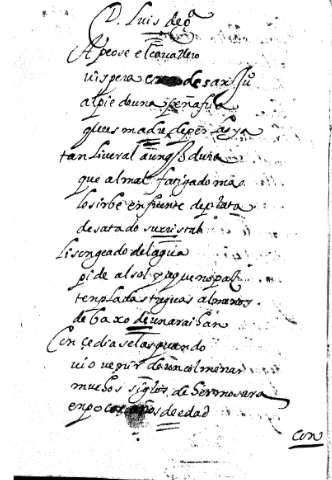 D. Luis de gª
Apeose el cauallero
vispera era de san Ju
al pie de una peña fria
ques madre de perlas ya
tan liveral aunq̃ dura
que al mas fatigado mas
lo sirbe en fuente de plata
desatado su xristal
Lisongeado del agua
pide al sol ya que no paz
templadas treguas al menos
debaxo de un araihan
Concediaselas quando
vio venir de un colmenar
muchos siglos de hermosura
en pocos años de edad
con